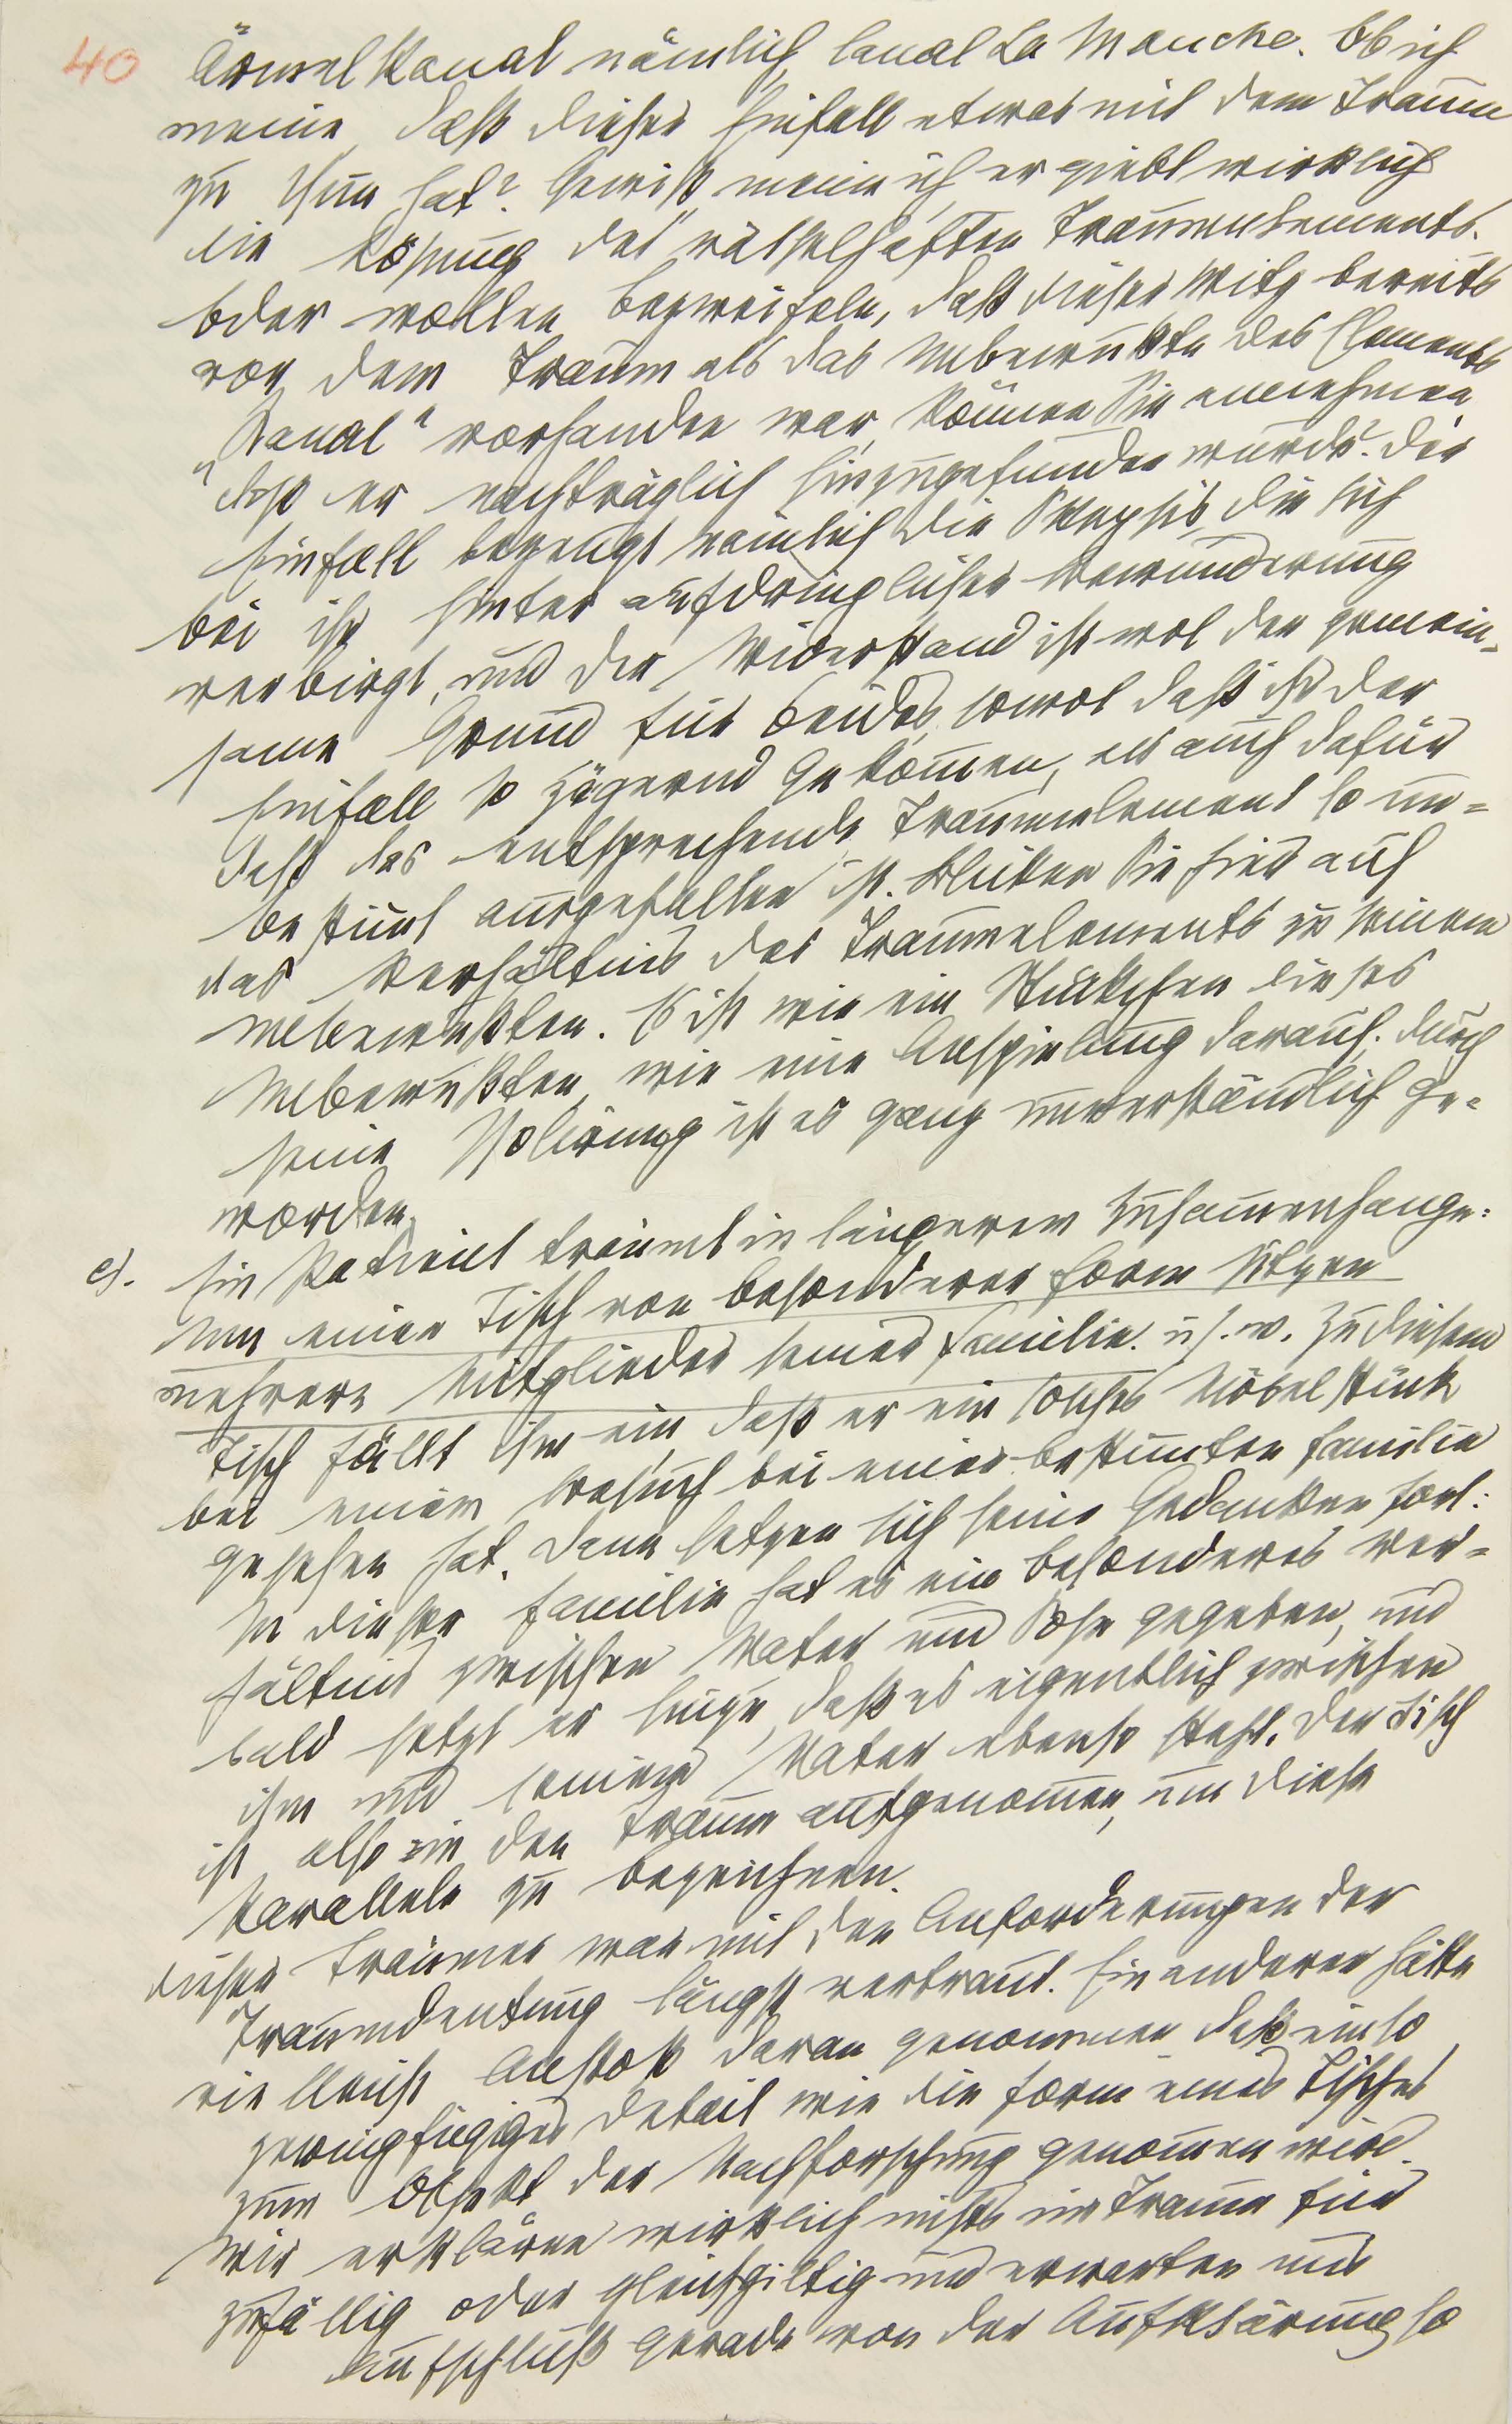 40 Ärmel Kanal nämlich, Canal La Manche. Ob ich
meine, daß dieser Einfall etwas mit dem Traum
zu thun hat? Gewiß meine ich, er giebt wirklich
die Lösung des rätselhaften Traumelements.
Oder wollen bezweifeln, daß dieser Witz bereits
vor dem Traum als das Unbewußte des Elements
„Kanal" vorhanden war, können Sie annehmen,
daß er nachträglich hinzugefunden wurde? Der
Einfall bezeugt nämlich die Skepsis, die sich
bei ihr hinter aufdringlicher Bewunderung
verbirgt, und der Widerstand ist wol der gemein-
same Grund für beides, sowol daß ihr der
Einfall so zögernd gekommen, als auch dafür
daß das entsprechende Traumelement so un=
bestimt ausgefallen ist. Blicken Sie hier auf
das Verhältnis des Traumelements zu seinem
Unbewußten. Es ist wie ein Stückchen dieses
Unbewußten, wie eine Anspielung darauf; durch
seine Isolirung ist es ganz unverständlich ge=
worden.
e). Ein Patient träumt in längerem Zusammenhange:
Um einen Tisch von besonderer Form sitzen
mehrere Mitglieder seiner Familie. u.s.w. Zu diesem
Tisch fällt ihm ein, daß er ein solches Möbelstück
bei einem Besuch bei einer bestimmten Familie
gesehen hat. Dann setzen sich seine Gedanken fort:
In dieser Familie hat es ein besonderes Ver=
hältnis zwischen Vater und Sohn gegeben, und
bald setzt er hinzu, daß es eigentlich zwischen
ihm und seinem Vater ebenso steht. Der Tisch
ist also in den Traum aufgenommen, um diese
Parallele zu bezeichnen.
Dieser Träumer war mit den Anforderungen der
Traumdeutung längst vertraut. Ein anderer hätte
vielleicht Anstoß daran genommen, daß ein so
geringfügiges Detail wie die Form eines Tisches
zum Objekt der Nachforschung genommen wird.
Wir erklären wirklich nichts im Traum für
zufällig oder gleichgiltig und erwarten uns
Aufschluß gerade von der Aufklärung so